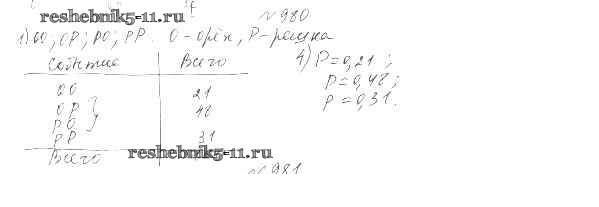 №980
reshebnik5-11.ru
1) ОО; ОР; РО; РР. О-орёл, Р-решка
Событие Всего
4) P=0,21;
ОО 21
P=0,48;
ОР } 48
P=0,31.
РО
РР 31
Всего
reshebnik5-11.ru
№981